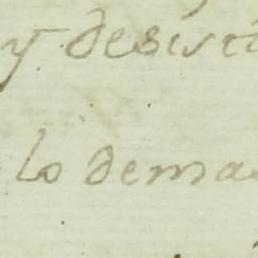 y desist
lo dema